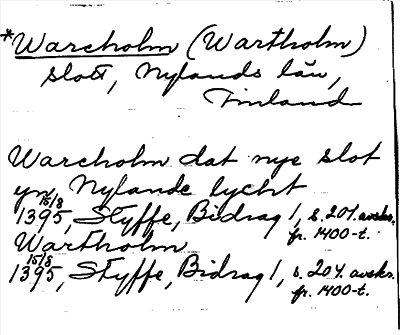 *Warcholm (Wartholm)
slott, Nylands län,
Finland
Warcholm dat nye slot
yn Nylande lycht
15/8
1395, Styffe, Bidrag 1, s. 204. avskr.
fr. 1400-t.
Wartholm
15/8
1395, Styffe, Bidrag 1, s. 204. avskr.
fr. 1400-t.